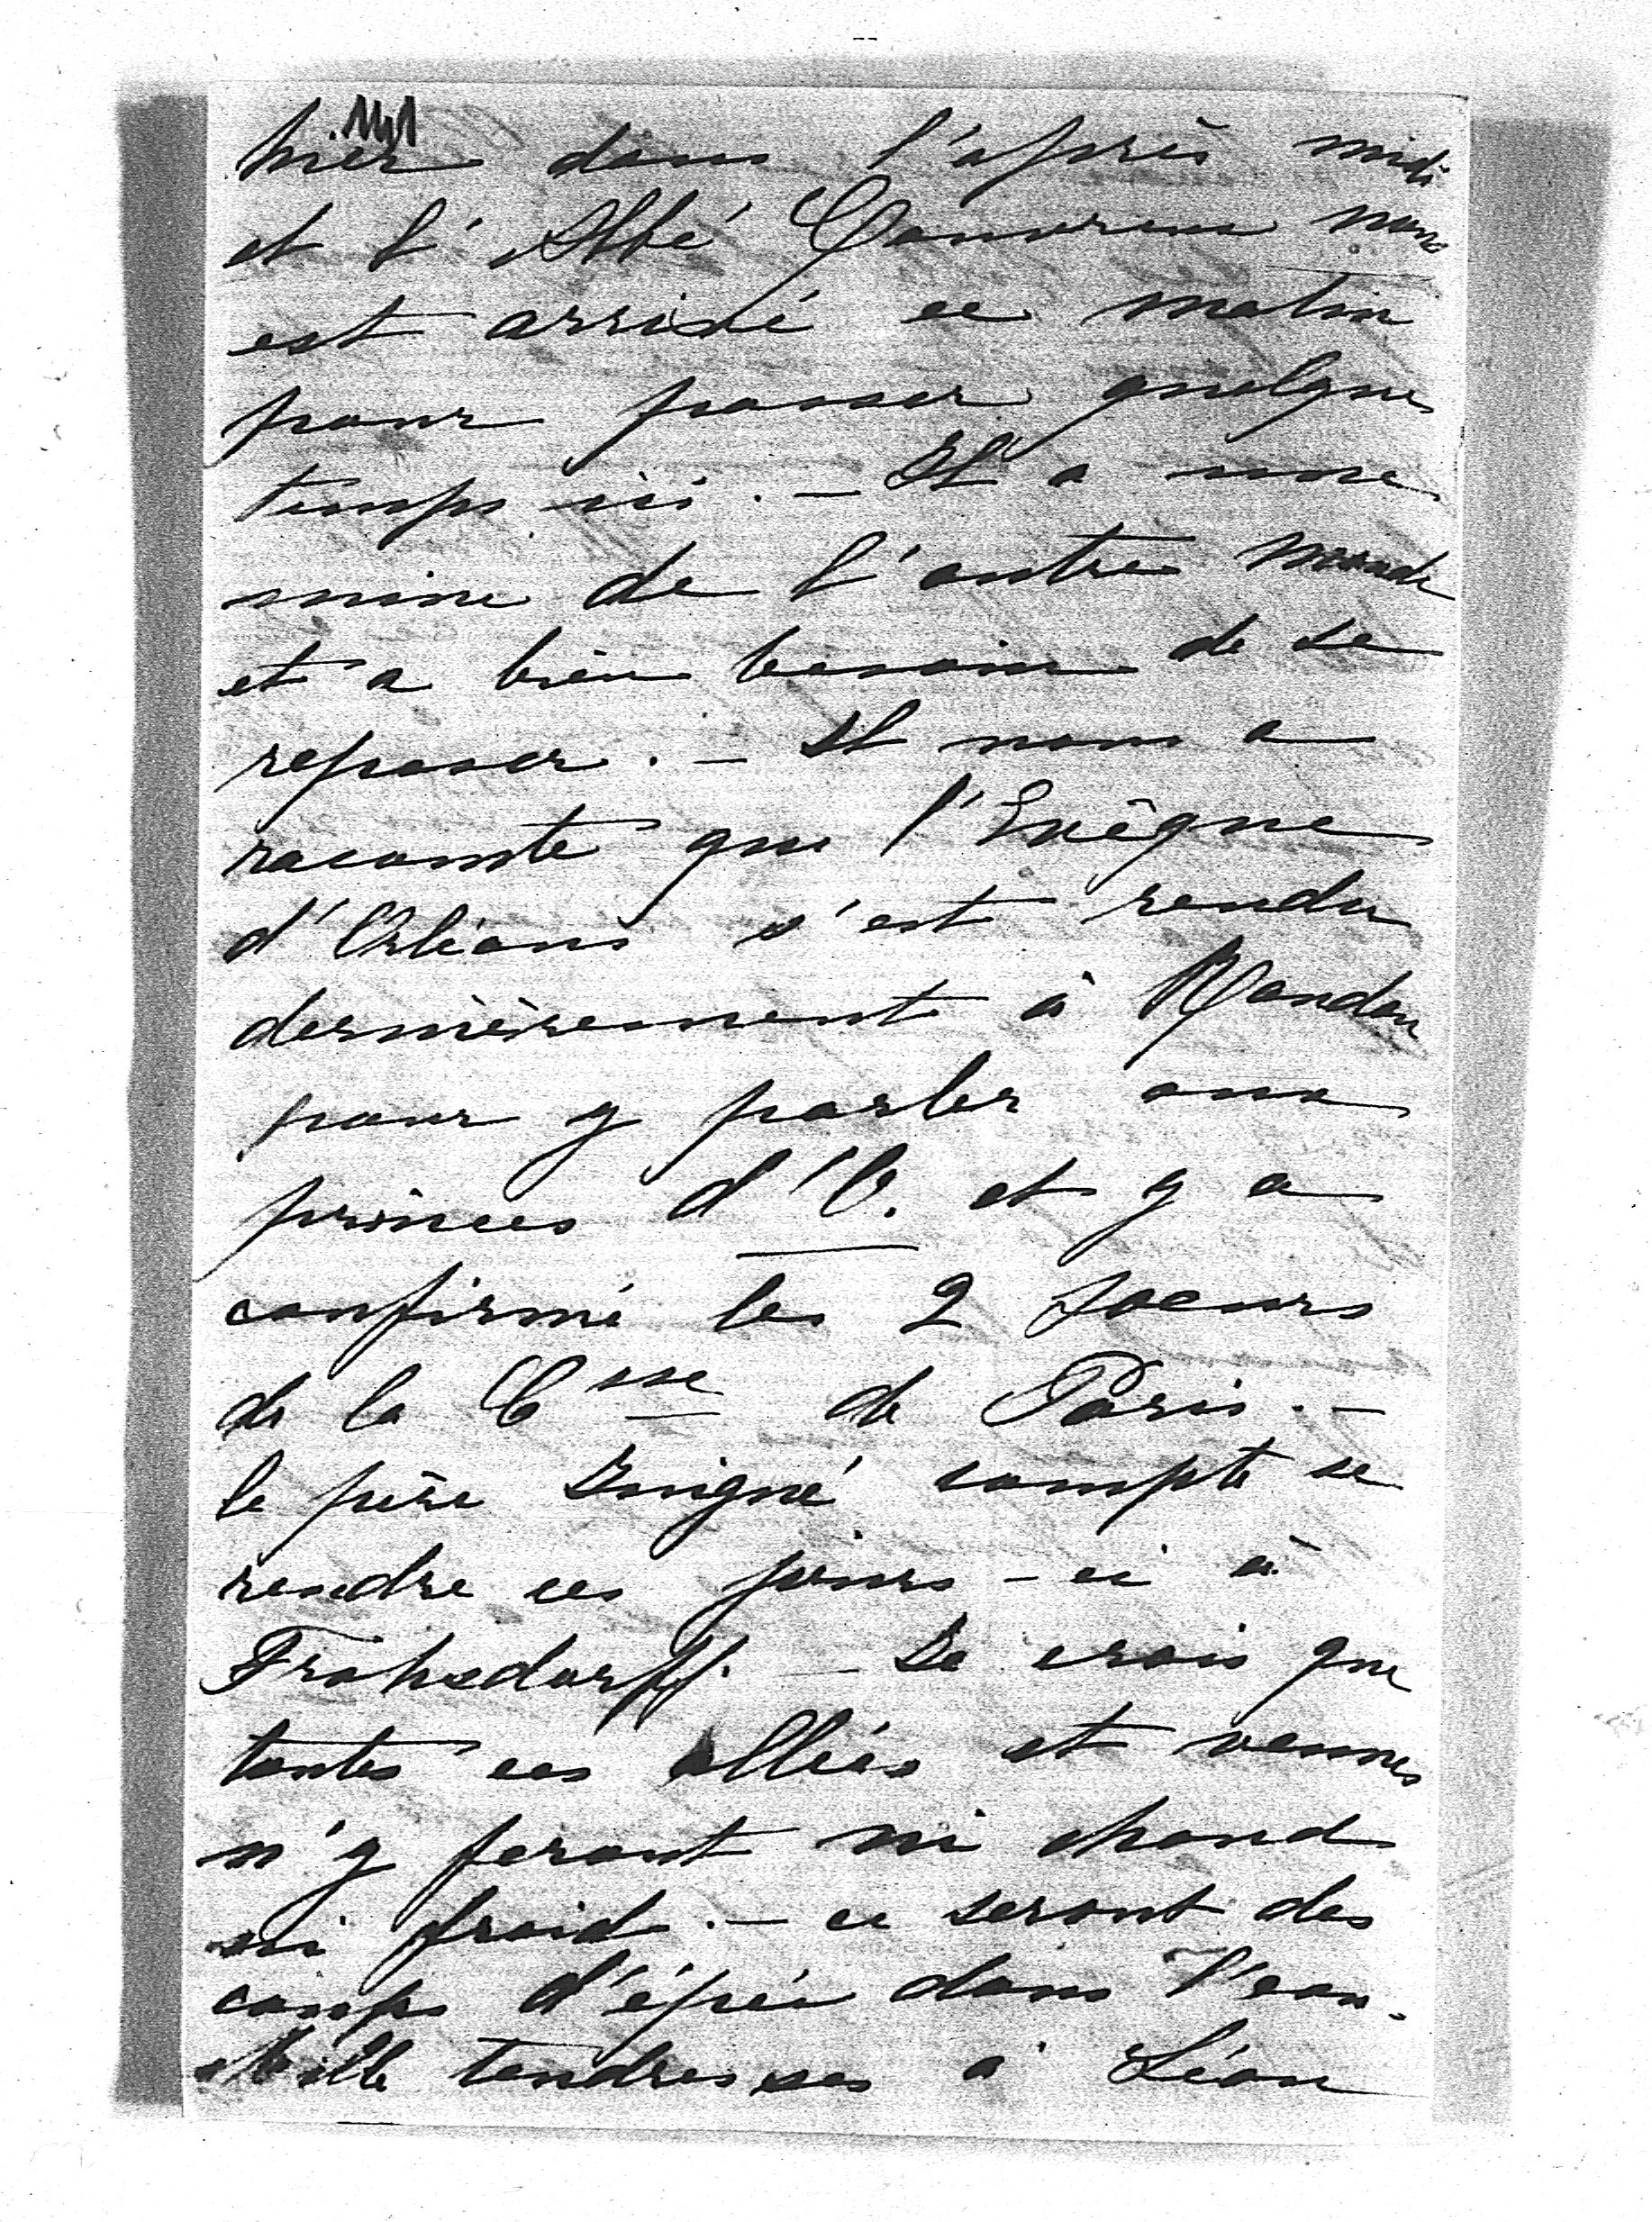 hier dans l'après midi
et l'Abbé nous
est arrivé ce matin
pour passer quelque
temps ici. – Il a une
mine de l'autre monde
et a bien besoin de se
reposer. – Il nous a
raconté que l'Evêque
d'Orléans s'est rendu
dernièrement à Randan
pour y parler aux
princes d'O. et y a
confirmé les 2 soeurs
de la Csse de Paris. –
le père compte se
rendre ces jours-ci à
Frohsdorff. – Je crois que
toutes ces allées et venues
n'y feront ni chaud
ni froid. – ce seront des
coups d'épée dans l'eau.
Mille tendresses à Léon